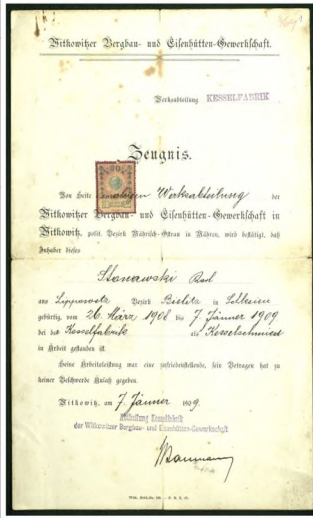 Witkowitzer Bergbau- und Eisenhütten-Gewerkschaft.
Werksabteilung KESSELFABRIK
Zeugnis.
Von Seite Werksabteilung der
Witkowitzer Bergbau- und Eisenhütten-Gewerkschaft in
Witkowitz, polit. Bezirk Mährisch-Ostrau in Mähren, wird bestätigt, daß
Inhaber dieses
Stanawski
aus Lippowetz Bezirk Bielitz in Schlesien
gebürtig, vom 26. März 1908 bis 7 Jänner 1909
bei der Kesselfabrik als Kesselschmied
in Arbeit gestanden ist.
Seine Arbeitsleistung war eine zufriedenstellende, sein Betragen hat zu
keiner Beschwerde Anlaß gegeben.
Witkowitz, am 7. Jänner 1909
Abteilung Kesselfabrik
der Witkowitzer Bergbau- und Eisenhütten-Gewerkschaft